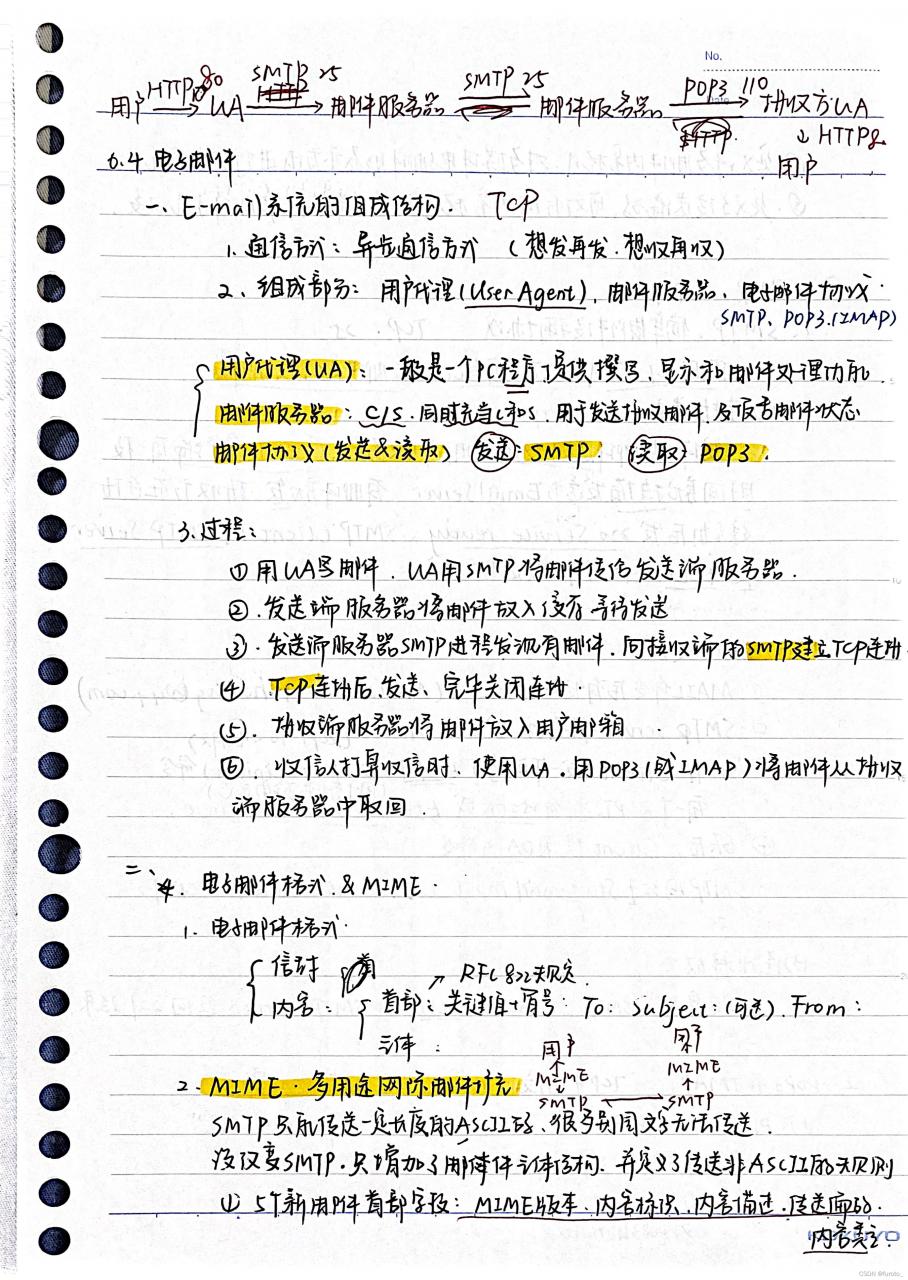 No.
用户 HTTP 80 UA SMTP 25 邮件服务器 SMTP 25 邮件服务器 POP3 110 接收方UA
↓ HTTP
用户
6.4 电子邮件
一、E-mail系统的组成结构. TCP
1. 通信方式: 异步通信方式 (想发再发.想收再收)
2、组成部分: 用户代理(User Agent)、邮件服务器、电子邮件协议.
SMTP、POP3.(IMAP)
用户代理(UA): 一般是一个PC程序,提供撰写、显示和邮件处理功能.
邮件服务器: C/S. 同时充当C和S. 用于发送接收邮件、及报告邮件状态
邮件协议(发送&读取) 发送: SMTP. 读取: POP3.
3.过程:
① 用UA写邮件. UA用SMTP将邮件传给发送端服务器.
②. 发送端服务器将邮件放入缓存 等待发送
③. 发送端服务器SMTP进程发现有邮件. 向接收端的SMTP建立TCP连接.
④ TCP连接后. 发送、完毕关闭连接.
⑤. 接收端服务器将邮件放入用户邮箱.
⑥. 收信人打算收信时. 使用UA. 用POP3(或IMAP)将邮件从接收
端服务器中取回.
二、4. 电子邮件格式 & MIME.
1. 电子邮件格式.
信封
↗ RFC 822规定.
内容: 首部: 关键值+冒号. To: Subject: (可选). From:
主体:
用户 用户
MIME MIME
SMTP SMTP
2. MIME. 多用途网际邮件扩充
SMTP 只能传送一定长度的ASCII码、很多别国文字无法传送.
没改变SMTP. 只增加了邮件主体结构. 并定义了传送非ASCII的规则
① 5个新邮件首部字段: MIME版本、内容标识、内容描述、传送编码.
内容类型.
CSDN @furoto_